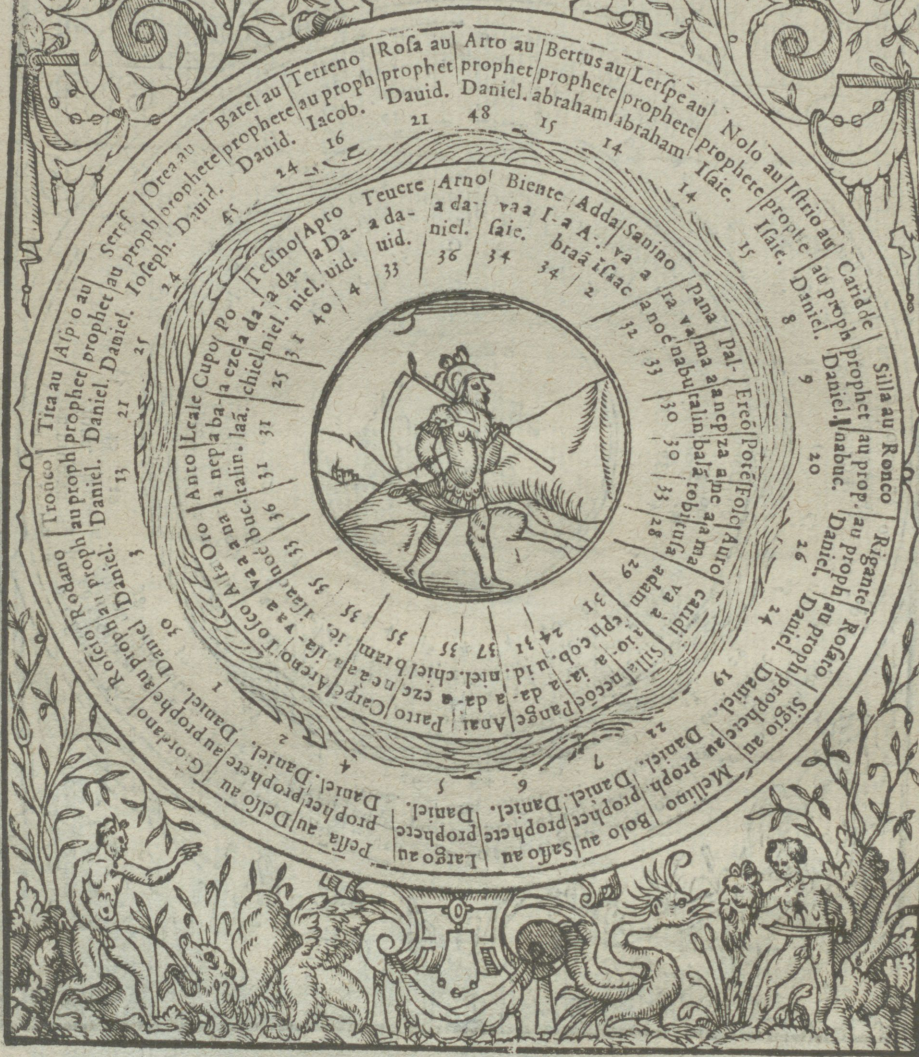 Roſa au
prophet
Dauid.
21
Arto au
prophet
Daniel.
48
Bertus au
prophete
abraham
15
Lerſpe au
prophete
abraham
14
Nolo au
prophete
Iſaie.
14
Iſtrio au
prophe
Iſaie.
15
Caridde
au proph
Daniel.
8
Silla au
prophet
Daniel.
9
Ronco
au prop.
nabuc.
20
Rigante
au proph
Daniel.
26
Roſaro
au proph
Daniel.
24
Sigio au
prophete
Daniel.
19
Mellino
au proph
Daniel.
22
Bolo au
prophete
Daniel.
7
Saſſo au
prophete
Daniel.
6
Largo au
prophete
Daniel.
5
Peſſa au
prophet
Daniel.
4
Delfo au
prophete
Daniel.
2
Giordano
au prophe
Daniel.
1
Roſcio
au proph
Daniel
30
Rodano
au proph
Daniel.
3
Tronco
au proph
Daniel.
13
Tita au
prophet
Daniel.
21
Aſpro au
prophet
Daniel.
25
Seref
au proph
Ioſeph.
24
Orea au
prophete
Dauid.
45
Batel au
prophete
Dauid.
24
Terreno
au proph
Iacob.
16
Arno
a da-
niel.
36
Biente
va a I-
ſaie.
34
Adda
a A-
braã
34
Sauino
va a
iſaac
2
Pana
ra va
a noé
32
Pal-
ma a
nabu
33
Ereô
a nep
talin
30
Potê
za a
balã
30
Foſc
me a
rob
33
Auro
a ma
tuſa
28
caridi
va a
adam
29
Silla
a io
ſeph
31
necoô
a ia-
cob.
24
Pange
a da-
uid.
31
Anai
a da-
niel.
37
Parto
a eze
chiel
35
Carpe
a a
bram
35
Areno
a iſa-
ie.
35
Toſco
va a
iſaac
35
Alfa
a
noé
33
Oro
a na
buc
36
Anto
a nep
talin.
31
Leale
a ba-
laã.
31
Cupo
a eze
chiel
25
Po
a da-
niel.
31
Teſino
a da-
niel.
40
Apro
a Da-
uid.
4
Teuere
a da-
uid.
33